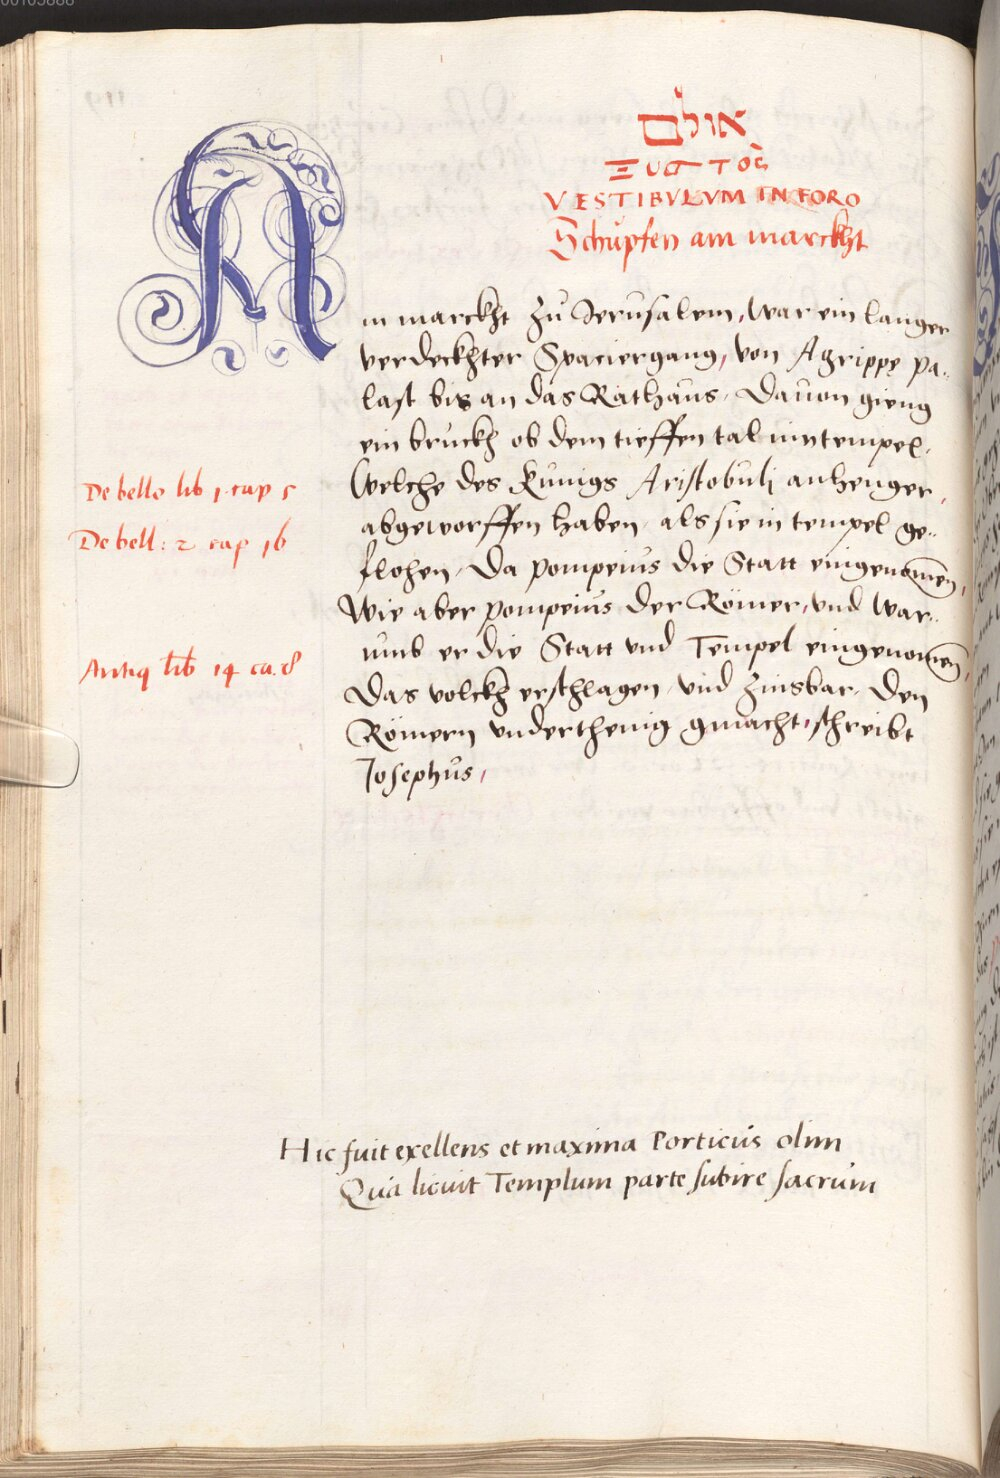 אולם
ΞυστOς
VESTIBVLVM IN FORO
Schupfen am marckht
Am marckht zu Jerusalem, war ein langer
verdeckhter Spaciergang, von Agrippę pa-
last bis an das Rathaus. Dauon gieng
ein bruckh ob dem tieffen tal inn tempel.
Welche des Kunigs Aristobuli anhenger,
abgeworffen haben, als sie in tempel ge-
flohen, Da pompeius die Statt eingenomen,
Wie aber pompeius der Römer, vnd war-
umb er die Statt vnd Tempel eingenomen,
Das volckh erschlagen, vnd zinsbar, den
Römern vnderthenig gmacht, schreibt
Josephus,
De bello lib 1. cap 5
De bell: 2 cap 16
Antiq lib 14 ca. 8
Hic fuit exellens et maxima Porticus olim
Qua licuit Templum parte subire sacrum